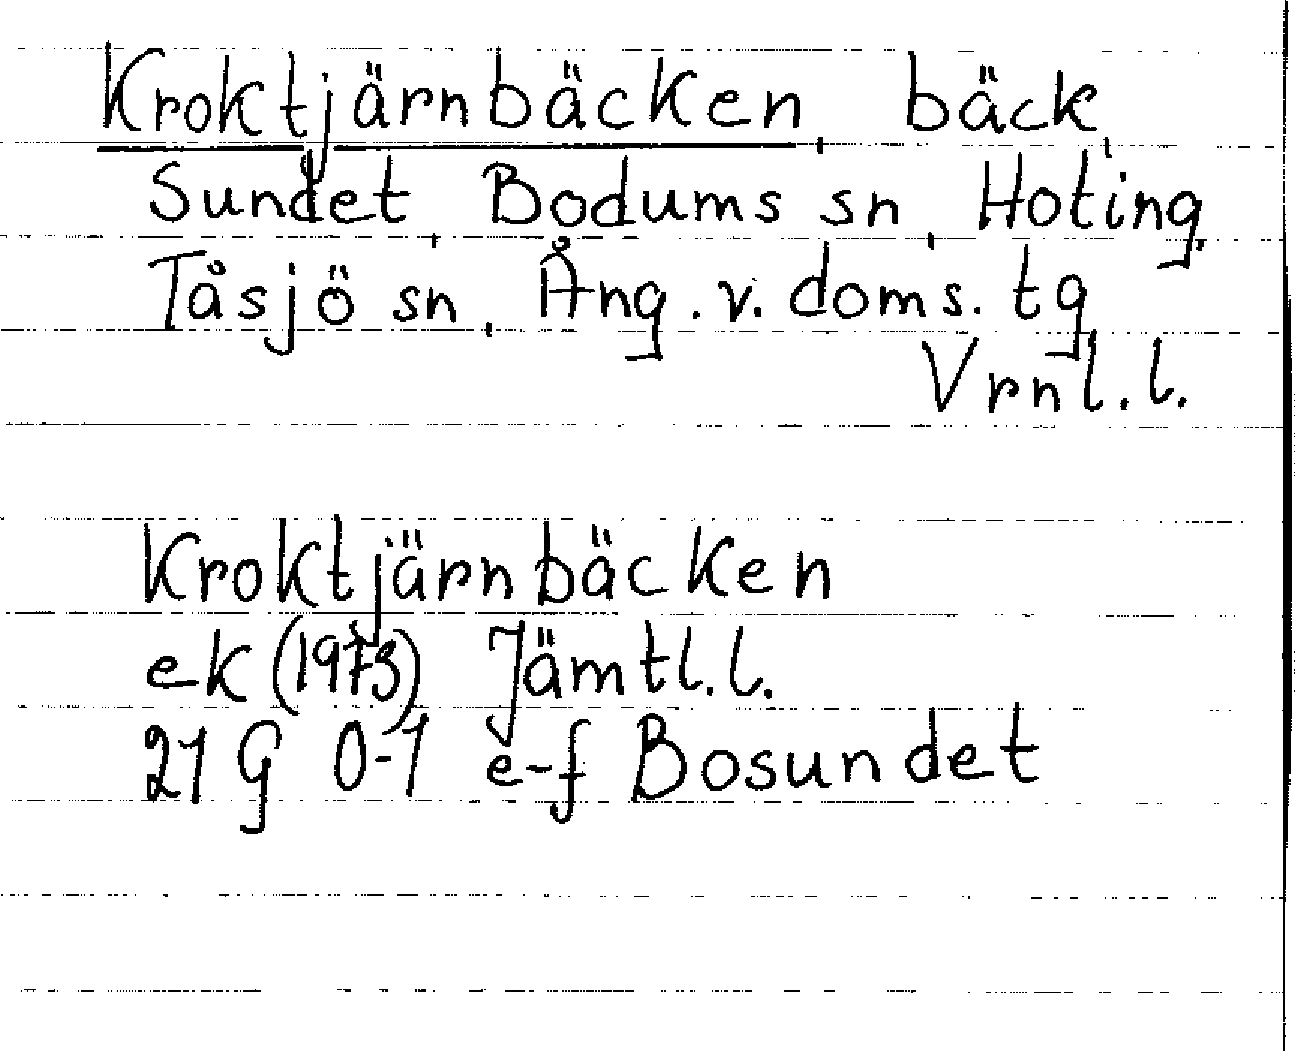 Kroktjärnbäcken, bäck,
Sundet, Bodums sn, Hoting,
Tåsjö sn, Ång. v. doms. tg
Vrnl.l.
Kroktjärnbäcken
ek (1973) Jämtl.l.
21 G 0-1 e-f Bosundet